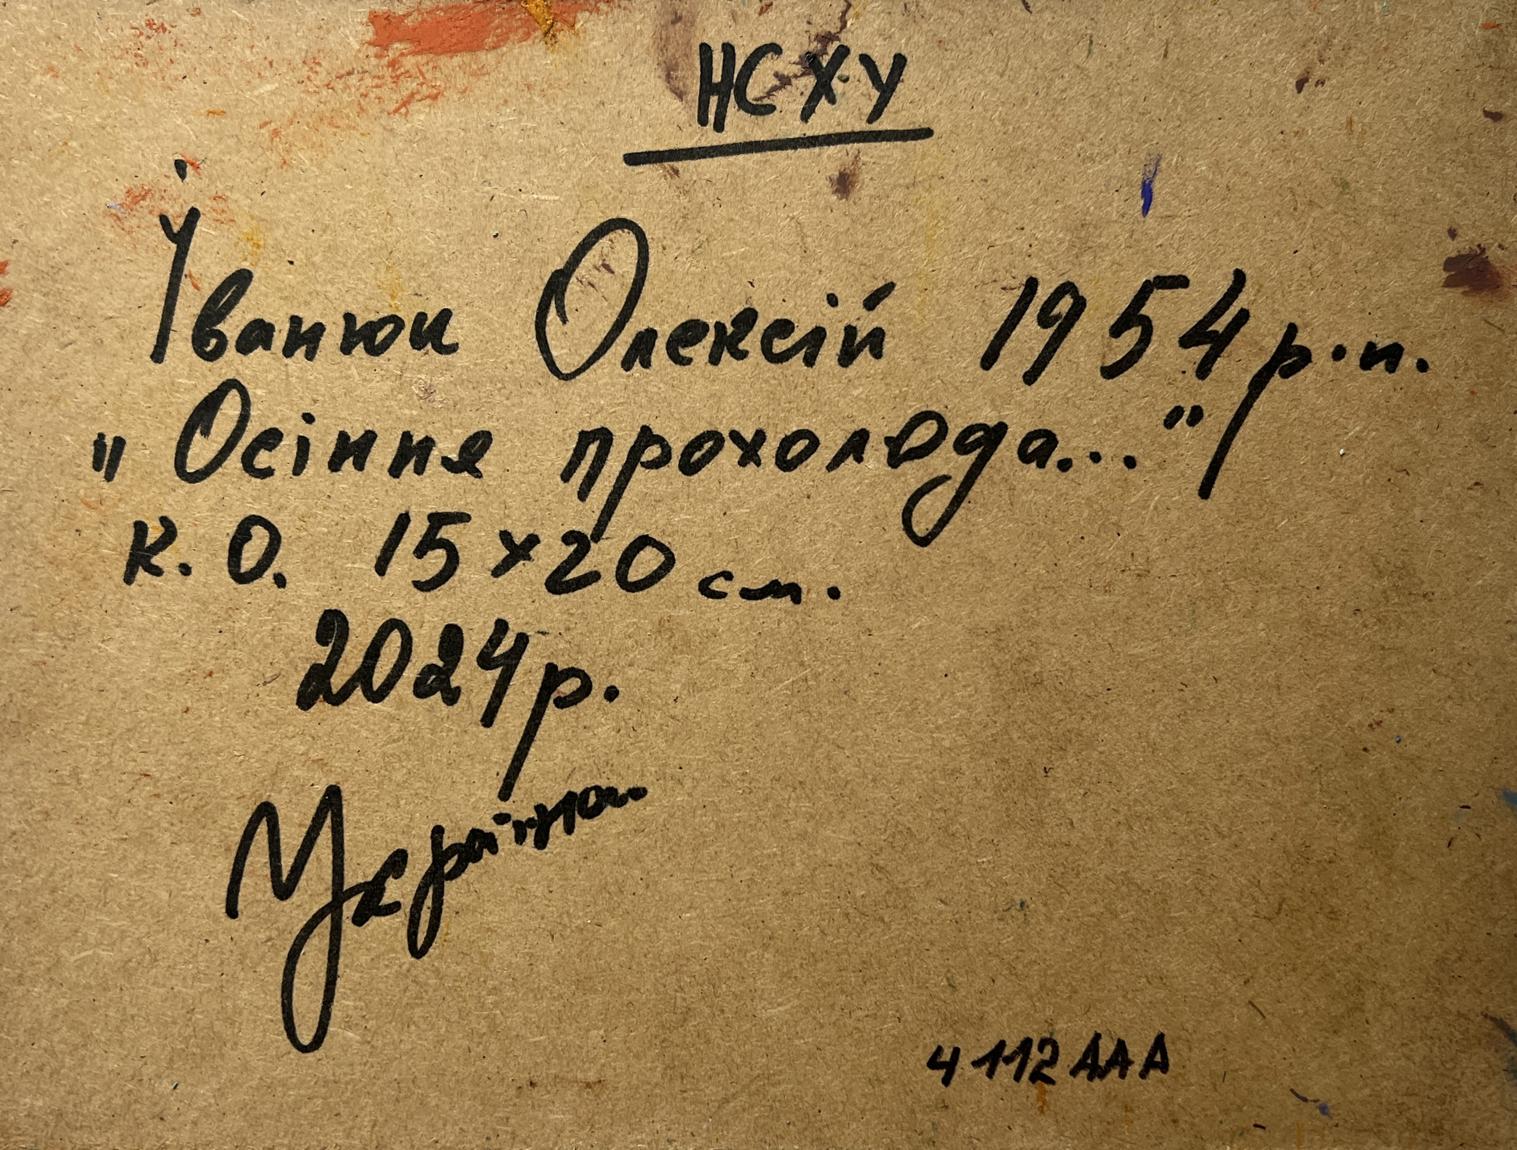 НСХУ
Іванюк Олексій 1954 р.н.
"Осіння прохолода..."
К.О. 15х20 см.
2024р.
Україна
4112ААА